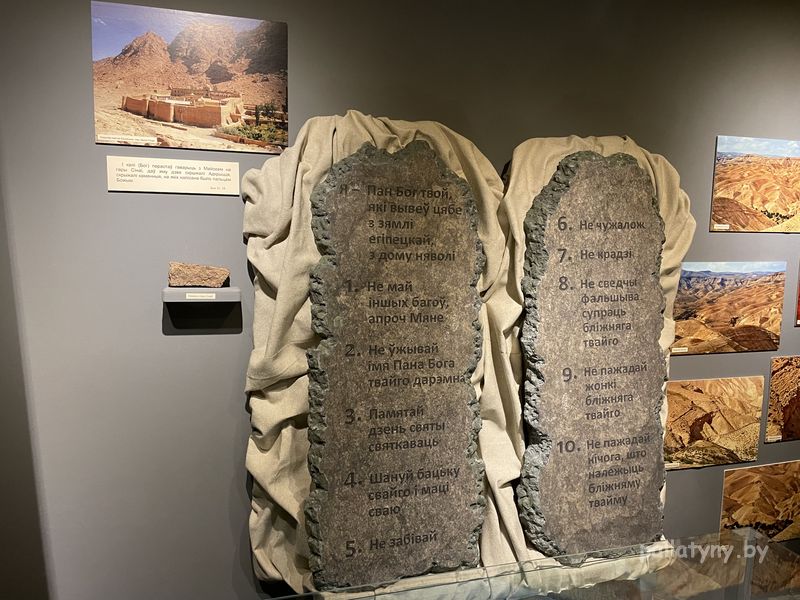 І калі (Бог) перастаў гаварыць з Майсеем на
гары Сінай, даў яму дзве скрыжалі Адкрыцця,
скрыжалі каменныя, на якіх напісана было пальцам
Божым
Я – Пан Бог твой,
які вывеў цябе
з зямлі
егіпецкай,
з дому няволі
1. Не май
іншых багоў,
апроч Мяне
2. Не ўжывай
імя Пана Бога
твайго дарэмна
3. Памятай
дзень святы
святкаваць
4. Шануй бацьку
свайго і маці
сваю
5. Не забівай
6. Не чужалож
7. Не крадзі
8. Не сведчы
фальшыва
супраць
бліжняга
твайго
9. Не пажадай
жонкі
бліжняга
твайго
10. Не пажадай
нічога, што
належыць
бліжняму
твайму
pallatyny.by